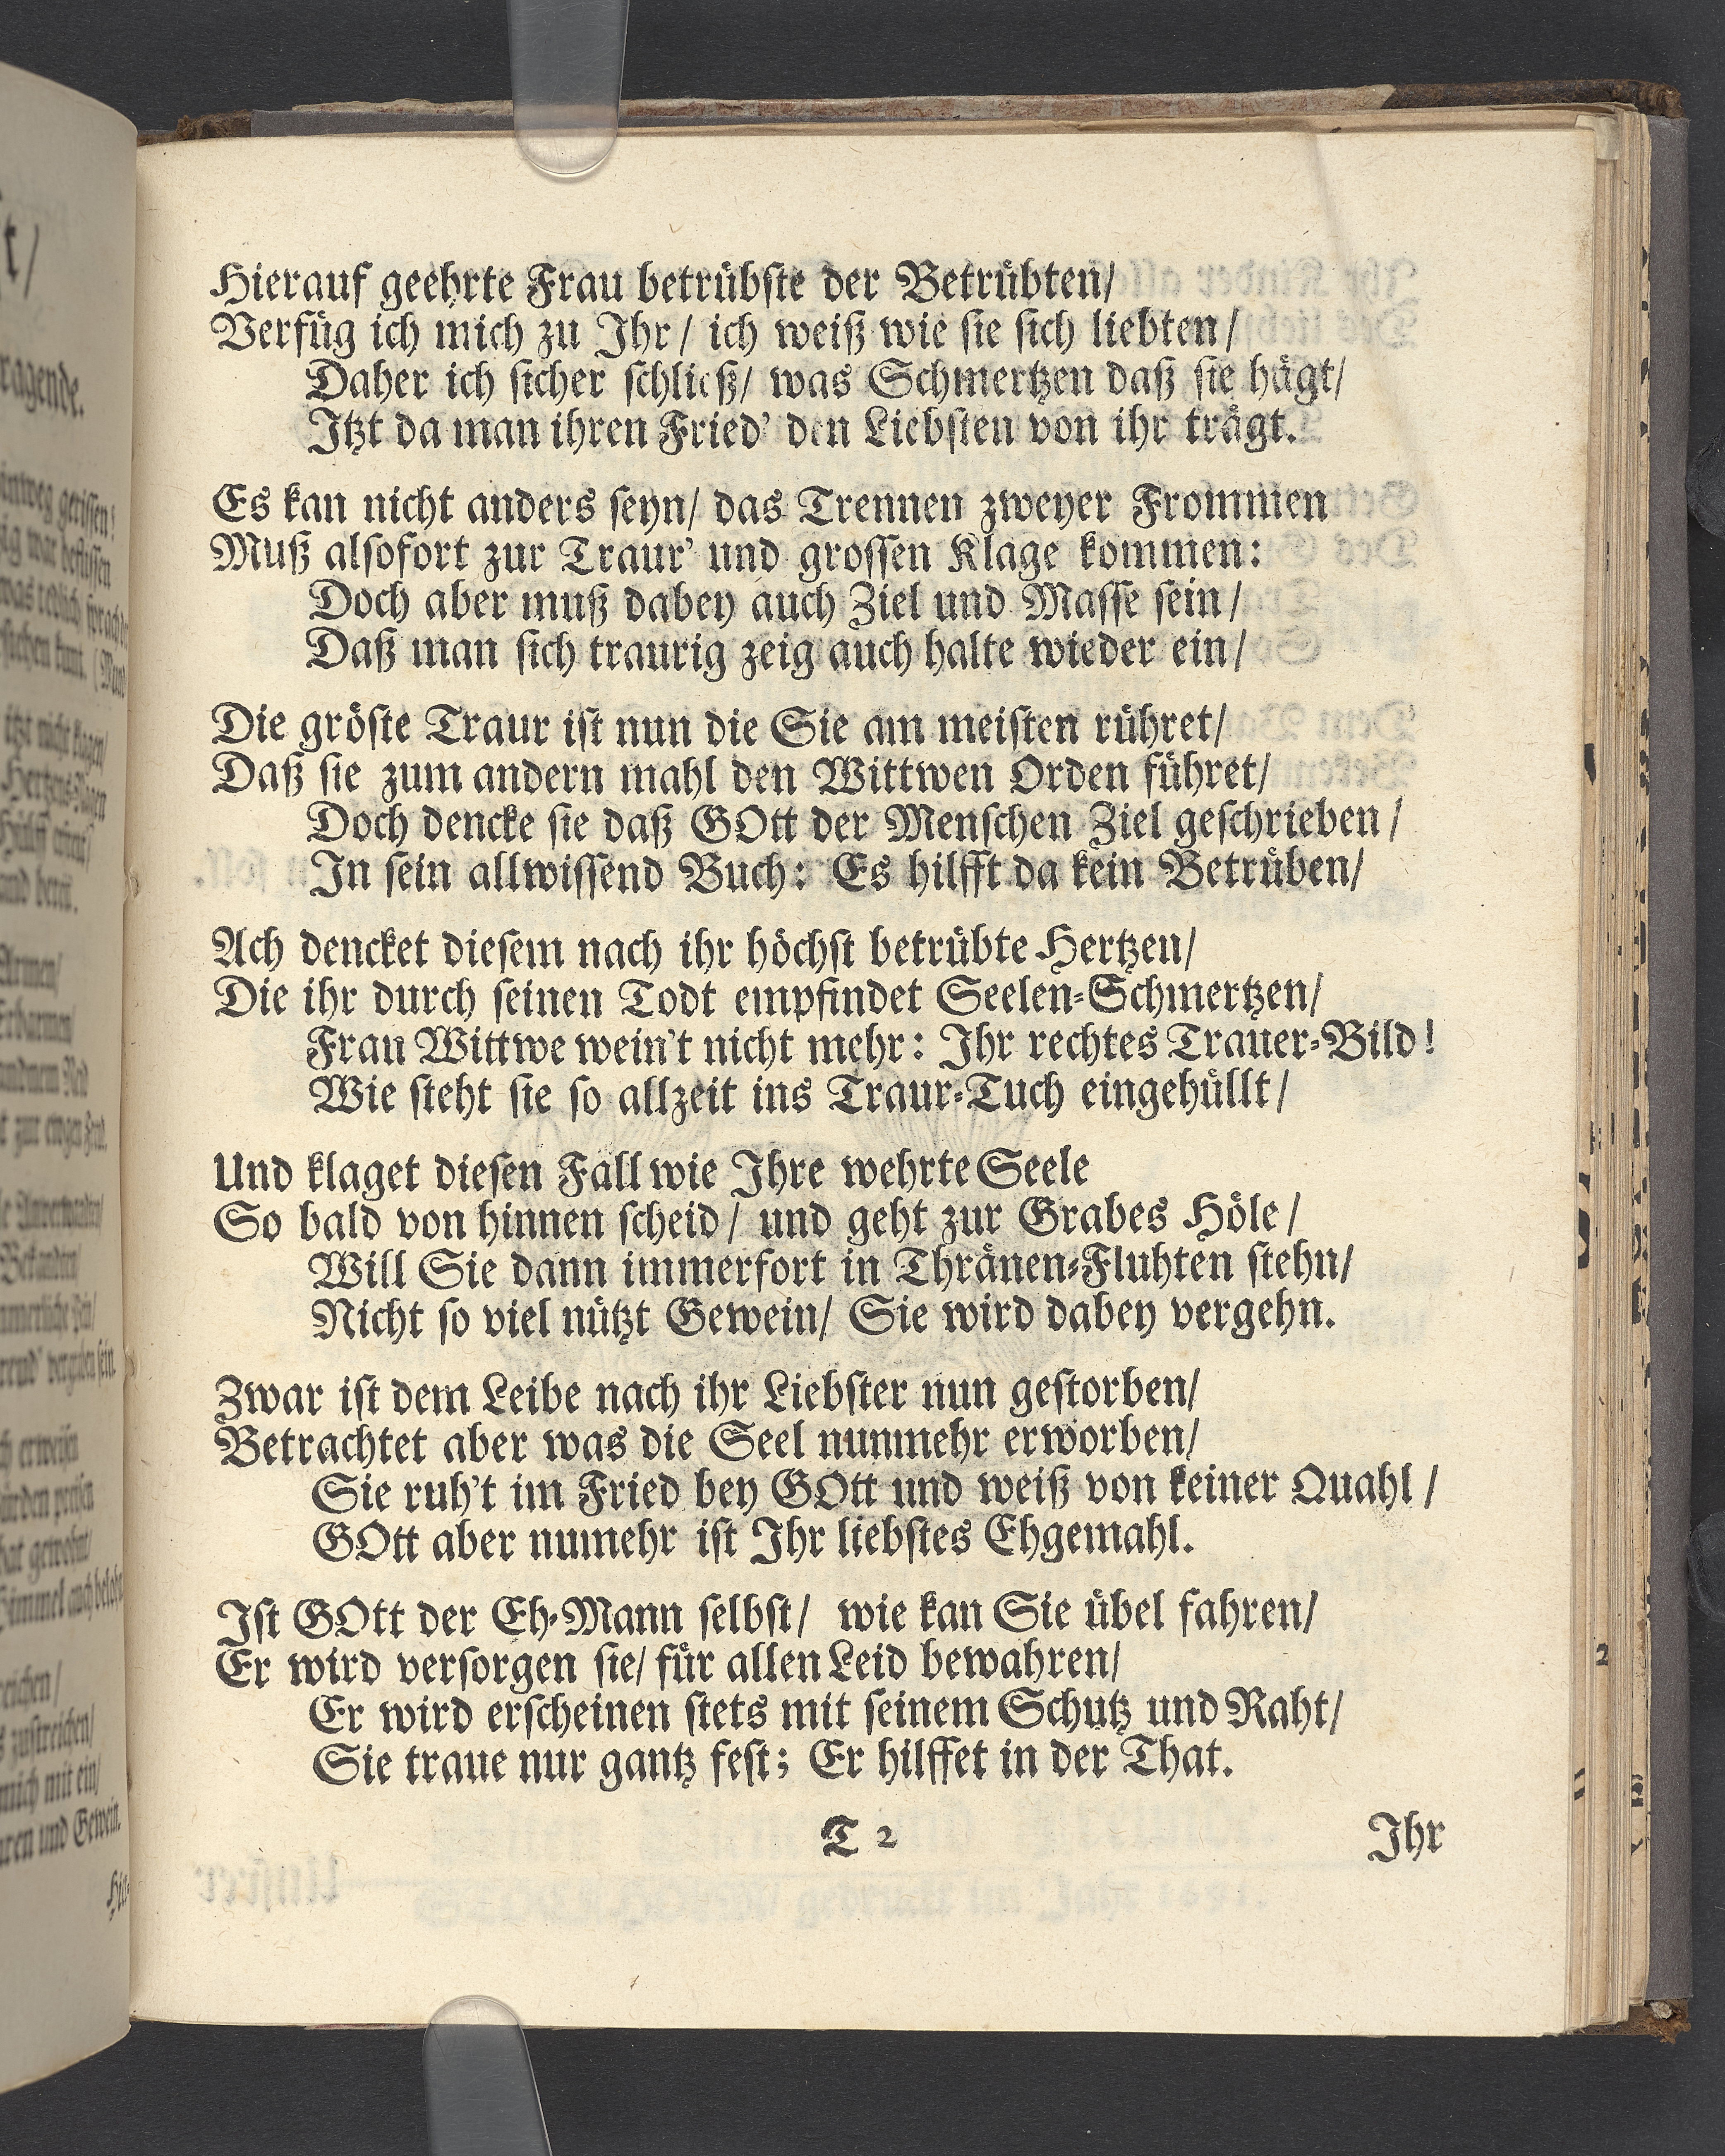 Hierauf geehrte Frau betrübste der Betrübten/
Verfüg ich mich zu Ihr/ ich weiß wie sie sich liebten/
Daher ich sicher schließ/ was Schmertzen daß sie hägt/
Itzt da man ihren Fried' den Liebsten von ihr trägt.
Es kan nicht anders seyn/ das Trennen zweyer Frommen
Muß alsofort zur Traur' und grossen Klage kommen:
Doch aber muß dabey auch Ziel und Masse sein/
Daß man sich traurig zeig auch halte wieder ein/
Die gröste Traur ist nun die Sie am meisten rühret/
Daß sie zum andern mahl den Wittwen Orden führet/
Doch dencke sie daß GOtt der Menschen Ziel geschrieben/
In sein allwissend Buch: Es hilfft da kein Betrüben/
Ach dencket diesem nach ihr höchst betrübte Hertzen/
Die ihr durch seinen Todt empfindet Seelen-Schmertzen/
Frau Wittwe wein't nicht mehr: Ihr rechtes Trauer-Bild!
Wie steht sie so allzeit ins Traur-Tuch eingehüllt/
Und klaget diesen Fall wie Ihre wehrte Seele
So bald von hinnen scheid/ und geht zur Grabes Höle/
Will Sie dann immerfort in Thränen-Fluhten stehn/
Nicht so viel nützt Gewein/ Sie wird dabey vergehn.
Zwar ist dem Leibe nach ihr Liebster nun gestorben/
Betrachtet aber was die Seel nunmehr erworben/
Sie ruh't im Fried bey GOtt und weiß von keiner Quahl/
GOtt aber numehr ist Ihr liebstes Ehgemahl.
Ist GOtt der Eh-Mann selbst/ wie kan Sie übel fahren/
Er wird versorgen sie/ für allen Leid bewahren/
Er wird erscheinen stets mit seinem Schutz und Raht/
Sie traue nur gantz fest; Er hilffet in der That.
T 2
Ihr